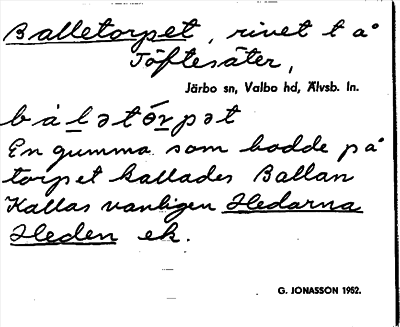 Balletorpet, rivet t å
Töftesäter,
Järbo sn, Valbo hd, Älvsb. ln.
bálǝtórpǝt
En gumma som bodde på
torpet kallades Ballan
Kallas vanligen Hedarna
Heden ek.
G. JONASSON 1952.